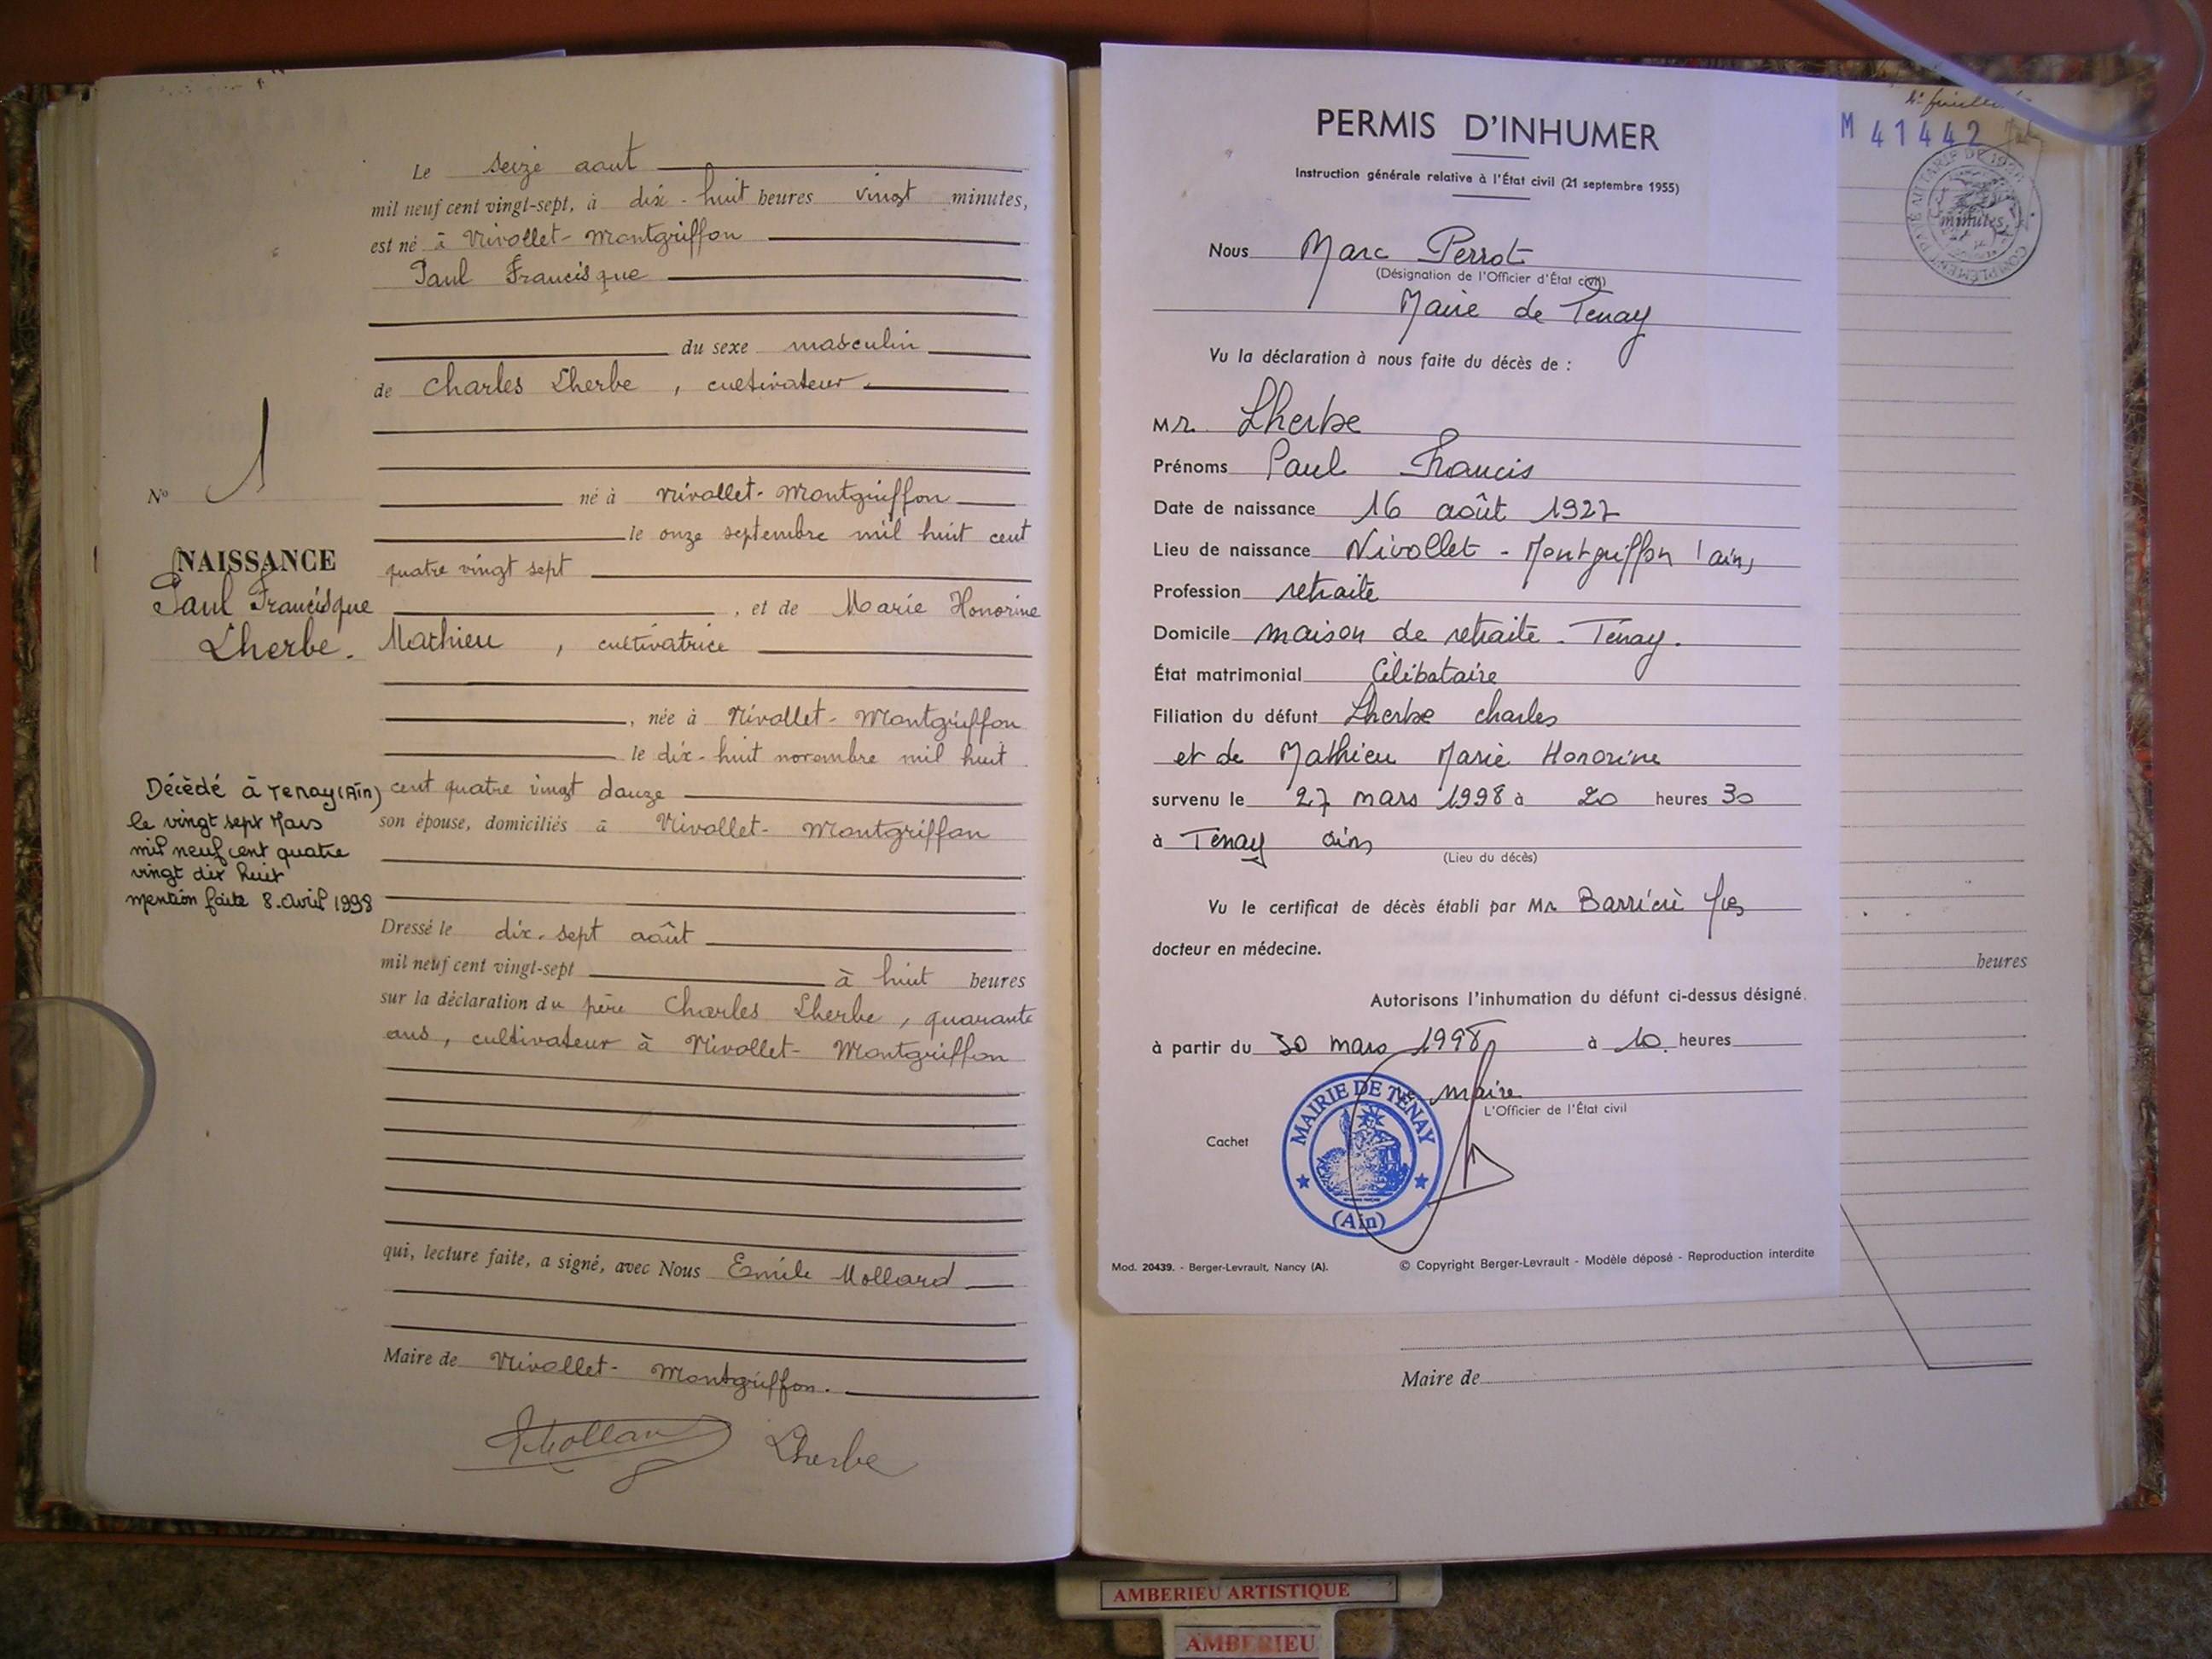 Le seize aout
mil neuf cent vingt-sept, à dix-huit heures vingt minutes,
est né à Nivollet-Montgriffon
Paul Francisque
du sexe masculin
de Charles Lherbe, cultivateur
né à Nivollet-Montgriffon
le onze septembre mil huit cent
quatre vingt sept
, et de Marie Honorine
Mathieu, cultivatrice
, née à Nivollet-Montgriffon
le dix-huit novembre mil huit
cent quatre vingt douze
son épouse, domiciliés à Nivollet-Montgriffon
Dressé le dix-sept août
mil neuf cent vingt-sept à huit heures
sur la déclaration du père Charles Lherbe, quarante
ans, cultivateur à Nivollet-Montgriffon
qui, lecture faite, a signé, avec Nous Emile Mollard
Maire de Nivollet-Montgriffon.
Mollard Lherbe
N° 1
NAISSANCE
Paul Francisque
Lherbe.
Décédé à Tenay (Ain)
le vingt sept Mars
mil neuf cent quatre
vingt dix huit
mention faite 8. Avril 1998
PERMIS D'INHUMER
Instruction générale relative à l'État civil (21 septembre 1955)
Nous Marc Perrot
(Désignation de l'Officier d'État civil)
Maire de Tenay
Vu la déclaration à nous faite du décès de :
Mr. Lherbe
Prénoms Paul Francis
Date de naissance 16 août 1927
Lieu de naissance Nivollet - Montgriffon (ain)
Profession retraité
Domicile maison de retraite. Tenay.
État matrimonial Célibataire
Filiation du défunt Lherbe charles
et de Mathieu Marie Honorine
survenu le 27 mars 1998 à 20 heures 30
à Tenay ain
(Lieu du décès)
Vu le certificat de décès établi par Mr Barrière Yves
docteur en médecine.
Autorisons l'inhumation du défunt ci-dessus désigné.
à partir du 30 mars 1998 à 10. heures
maire
L'Officier de l'État civil
Cachet
MAIRIE DE TENAY
(Ain)
Mod. 20439. - Berger-Levrault, Nancy (A).
© Copyright Berger-Levrault - Modèle déposé - Reproduction interdite
M 41442
minutes,
heures
Maire de
AMBERIEU ARTISTIQUE
AMBERIEU